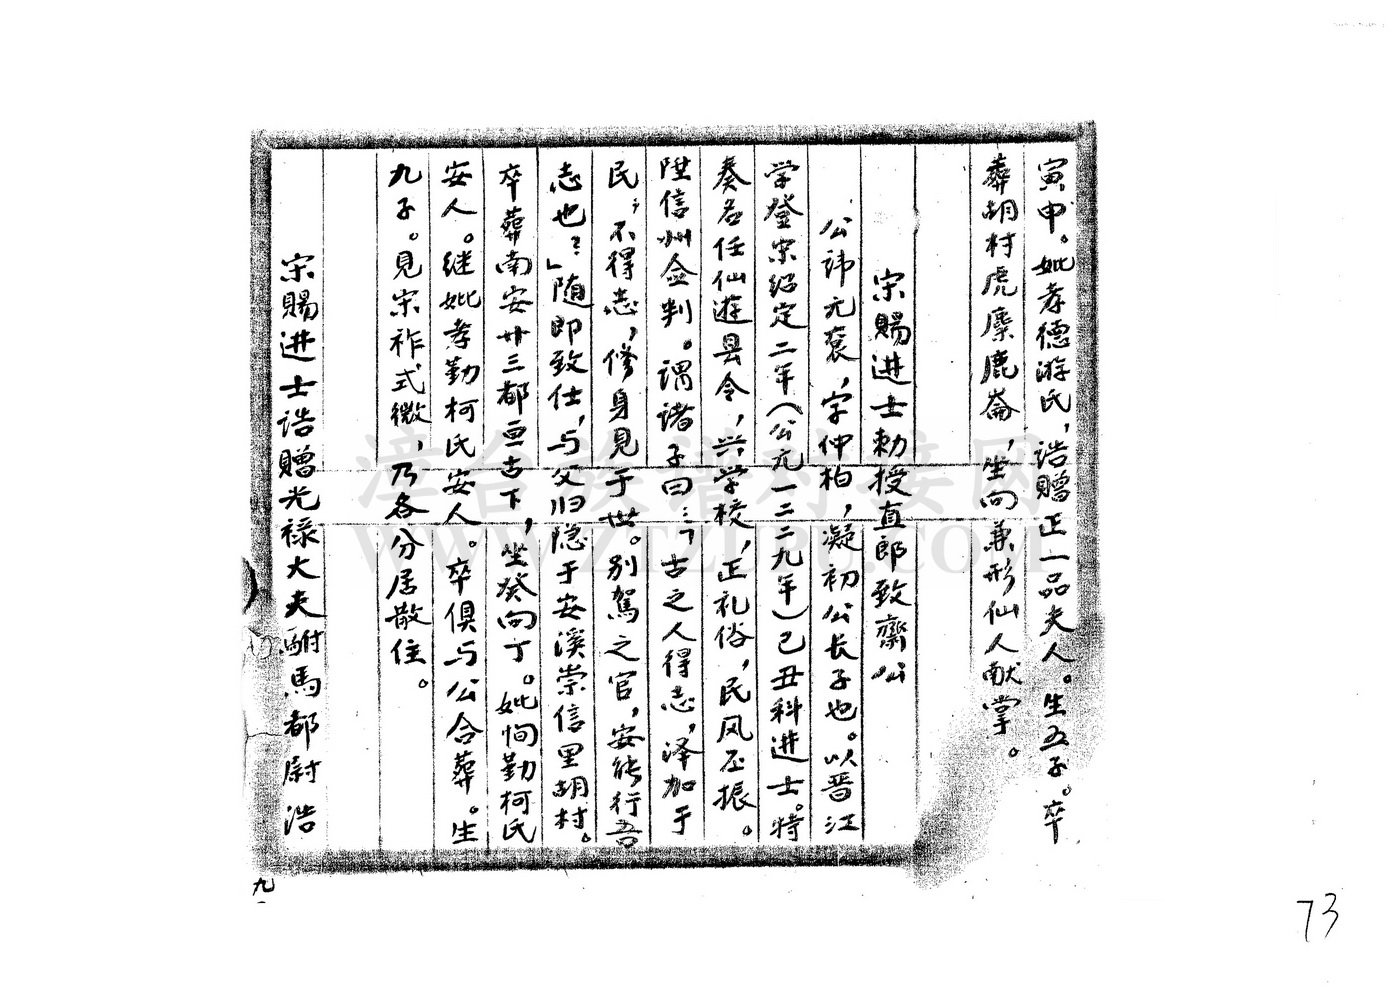 寅申。妣孝德游氏，诰赠正一品夫人。生五子。卒
葬胡村虎麇鹿崙，坐向兼形仙人献掌。
宋賜进士勅授直郎致齋公
公讳元裒，字仲柏，凝初公长子也。以晋江
学登宗绍定二年（公元一二二九年）己丑科进士。特
奏名任仙遊县令，兴学校，正礼俗，民风丕振。
陞信州佥判。谓诸子曰：「古之人得志，泽加于
民；不得志，修身見于世。别駕之官，安能行吾
志也？」随即致仕，与父归隐于安溪崇信里胡村。
卒葬南安廿三都亘古下，坐癸向丁。妣恂勤柯氏
安人。继妣孝勤柯氏安人。卒俱与公合葬。生
九子。見宋祚式微，乃各分居散住。
宋賜进士诰赠光禄大夫駙馬都尉浩
九
73
漳台族谱对接网
WWW.ZTZUPU.COM